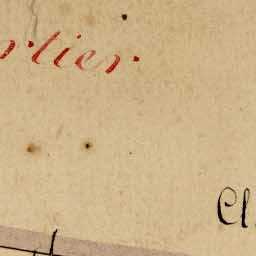 rtier.
Cl